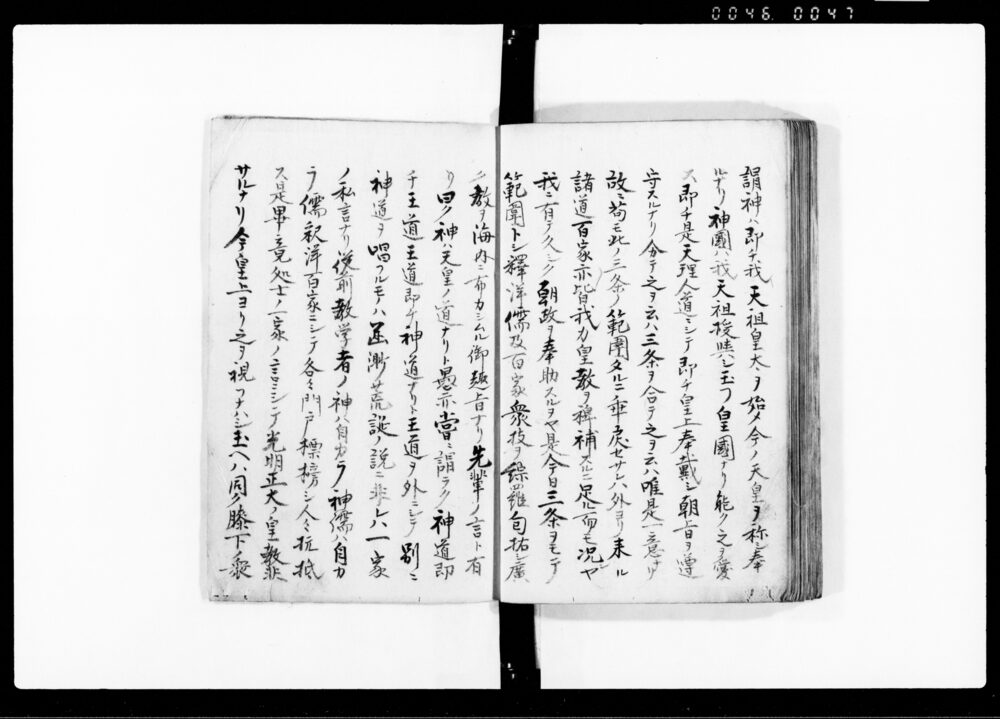 0046 0047
謂神ハ即チ我 天祖皇大ヲ始メ今ノ天皇ヲ称シ奉
ルナリ神國ハ我 天祖授與シ玉フ皇國ナリ能ク之ヲ愛
ス即チ是天理人道ニシテ即チ皇上奉戴シ朝旨ヲ遵
守スルナリ分テ之ヲ云ハ三条ヲ合テ之ヲ云ハ唯是一意ナリ
故ニ苟モ此ノ三条ノ範圍タルニ乖戻セサレハ外ヨリ来ル
諸道百家亦皆我カ皇教ヲ裨補スルニ足ル而モ況ヤ
我ニ有テ久シク 朝政ヲ奉助スルヲヤ是今日三条ヲモテ
範圍トシ釋洋儒及百家衆技ヲ綜羅包括シ廣
ク教ヲ海内ニ布カシムル御趣旨ナリ先輩ノ言ト有
リ曰ク神ハ天皇ノ道ナリト愚亦嘗ニ謂ラク神道即
チ王道王道即チ神道ナリト王道ヲ外ニシテ別ニ
神道ヲ唱フルモノハ 荒誕ノ説ニ非レハ一家
ノ私言ナリ従前教学者ノ神ハ自カラ神儒ハ自カ
ラ儒釈洋百家ニシテ各々門戸標榜シ人々抗抵
ス是畢竟処士ノ一家ノ言ニシテ光明正大ノ皇教ニ非
サルナリ今皇上ヨリ之ヲ視ソナハシ玉ヘハ同ク膝下ノ衆